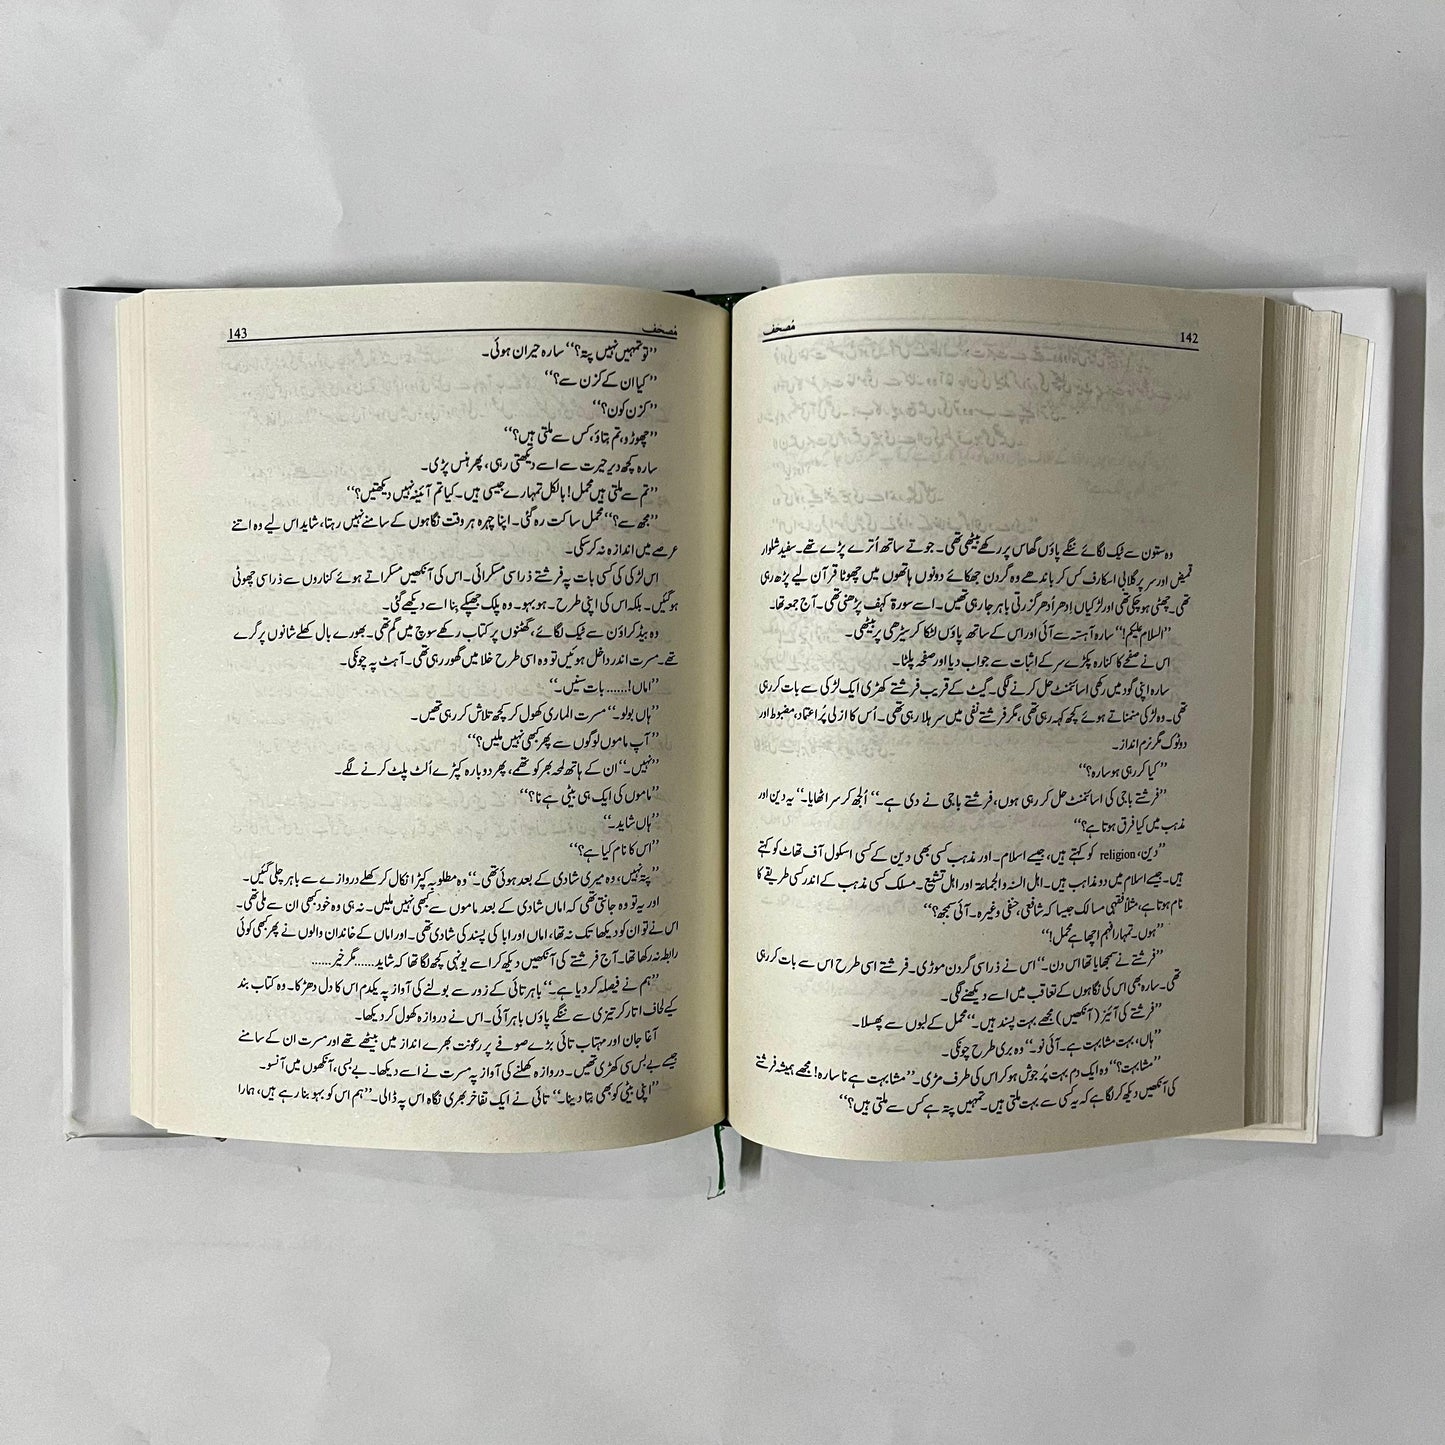 142
مُصحف
وہ ستون سے ٹیک لگائے ننگے پاؤں گھاس پر رکھے بیٹھی تھی۔ جوتے ساتھ اُترے پڑے تھے۔ سفید شلوار
قمیض اور سر پر گلابی اسکارف کس کر باندھے وہ گردن جھکائے دونوں ہاتھوں میں چھوٹا قرآن لیے پڑھ رہی
تھی۔ چھٹی ہو چکی تھی اور لڑکیاں اِدھر اُدھر گزرتی باہر جا رہی تھیں۔ اسے سورۃ کہف پڑھنی تھی۔ آج جمعہ تھا۔
”السلام علیکم!“ سارہ آہستہ سے آئی اور اس کے ساتھ پاؤں لٹکا کر سیڑھی پر بیٹھی۔
اس نے صفحے کا کنارہ پکڑے سر کے اثبات سے جواب دیا اور صفحہ پلٹا۔
سارہ اپنی گود میں رکھی اسائنمنٹ حل کرنے لگی۔ گیٹ کے قریب فرشتے کھڑی ایک لڑکی سے بات کر رہی
تھی۔ وہ لڑکی منمناتے ہوئے کچھ کہہ رہی تھی، مگر فرشتے نفی میں سر ہلا رہی تھی۔ اُس کا ازلی پُر اعتماد، مضبوط اور
دو ٹوک مگر نرم انداز۔
”کیا کر رہی ہو سارہ؟“
”فرشتے باجی کی اسائنمنٹ حل کر رہی ہوں، فرشتے باجی نے دی ہے۔“ اُلجھ کر سر اٹھایا۔ ”یہ دین اور
مذہب میں کیا فرق ہوتا ہے؟“
”دین، religion کو کہتے ہیں، جیسے اسلام۔ اور مذہب کسی بھی دین کے کسی اسکول آف تھاٹ کو کہتے
ہیں۔ جیسے اسلام میں دو مذاہب ہیں۔ اہل السنۃ والجماعۃ اور اہل تشیع۔ مسلک کسی مذہب کے اندر کسی طریقے کا
نام ہوتا ہے، مثلاً فقہی مسالک جیسا کہ شافعی، حنفی وغیرہ۔ آئی سمجھ؟“
”ہوں۔ تمہارا فہم اچھا ہے محمل!“
”فرشتے نے سمجھایا تھا اس دن۔“ اس نے ذرا سی گردن موڑی۔ فرشتے اسی طرح اس سے بات کر رہی
تھی۔ سارہ بھی اس کی نگاہوں کے تعاقب میں اسے دیکھنے لگی۔
”فرشتے کی آئیز (آنکھیں) مجھے بہت پسند ہیں۔“ محمل کے لبوں سے پھسلا۔
”ہاں، بہت مشابہت ہے۔ آئی نو۔“ وہ بری طرح چونکی۔
”مشابہت؟“ وہ ایک دم بہت پُرجوش ہو کر اس کی طرف مڑی۔ ”مشابہت ہے نا سارہ! مجھے ہمیشہ فرشتے
کی آنکھیں دیکھ کر لگا ہے کہ یہ کسی سے بہت ملتی ہیں۔ تمہیں پتہ ہے کس سے ملتی ہیں؟“
مُصحف
143
”تو تمہیں نہیں پتہ؟“ سارہ حیران ہوئی۔
”کیا ان کے کزن سے؟“
”کزن کون؟“
”چھوڑو، تم بتاؤ، کس سے ملتی ہیں؟“
سارہ کچھ دیر حیرت سے اسے دیکھتی رہی، پھر ہنس پڑی۔
”تم سے ملتی ہیں محمل! بالکل تمہارے جیسی ہیں۔ کیا تم آئینہ نہیں دیکھتیں؟“
”مجھ سے؟“ محمل ساکت رہ گئی۔ اپنا چہرہ ہر وقت نگاہوں کے سامنے نہیں رہتا، شاید اس لیے وہ اتنے
عرصے میں اندازہ نہ کر سکی۔
اس لڑکی کی کسی بات پہ فرشتے ذرا سی مسکرائی۔ اس کی آنکھیں مسکراتے ہوئے کناروں سے ذرا سی چھوٹی
ہو گئیں۔ بلکہ اس کی اپنی طرح۔ ہو بہو۔ وہ پلک جھپکے بِنا اسے دیکھے گئی۔
وہ بیڈ کراؤن سے ٹیک لگائے، گھٹنوں پر کتاب رکھے سوچ میں گم تھی۔ بھورے بال کھلے شانوں پر گرے
تھے۔ مسرت اندر داخل ہوئیں تو وہ اسی طرح خلا میں گھور رہی تھی۔ آہٹ پہ چونکی۔
”اماں!...... بات سنیں۔“
”ہاں بولو۔“ مسرت الماری کھول کر کچھ تلاش کر رہی تھیں۔
”آپ ماموں لوگوں سے پھر کبھی نہیں ملیں؟“
”نہیں۔“ ان کے ہاتھ لمحہ بھر کو تھمے، پھر دوبارہ کپڑے اُلٹ پلٹ کرنے لگے۔
”ماموں کی ایک ہی بیٹی ہے نا؟“
”ہاں شاید۔“
”اس کا نام کیا ہے؟“
”پتہ نہیں، وہ میری شادی کے بعد ہوئی تھی۔“ وہ مطلوبہ کپڑا نکال کر کھلے دروازے سے باہر چلی گئیں۔
اور یہ تو وہ جانتی تھی کہ اماں شادی کے بعد ماموں سے کبھی نہیں ملیں۔ نہ ہی وہ خود کبھی ان سے ملی تھی۔
اس نے تو ان کو دیکھا تک نہ تھا، اماں اور ابا کی پسند کی شادی تھی۔ اور اماں کے خاندان والوں نے پھر کبھی کوئی
رابطہ نہ رکھا تھا۔ آج فرشتے کی آنکھیں دیکھ کر اسے یونہی کچھ لگا تھا کہ شاید...... مگر خیر......
”ہم نے فیصلہ کر دیا ہے۔“ باہر تائی کے زور سے بولنے کی آواز پہ یکدم اس کا دل دھڑکا۔ وہ کتاب بند
کیے لحاف اتار کر تیزی سے ننگے پاؤں باہر آئی۔ اس نے دروازہ کھول کر دیکھا۔
آغا جان اور مہتاب تائی بڑے صوفے پر رعونت بھرے انداز میں بیٹھے تھے اور مسرت ان کے سامنے
جیسے بے بس سی کھڑی تھیں۔ دروازہ کھلنے کی آواز پہ مسرت نے اسے دیکھا۔ بے بسی، آنکھوں میں آنسو۔
”اپنی بیٹی کو بھی بتا دینا۔“ تائی نے ایک تفاخر بھری نگاہ اس پہ ڈالی۔ ”ہم اس کو بہو بنا رہے ہیں، ہمارا